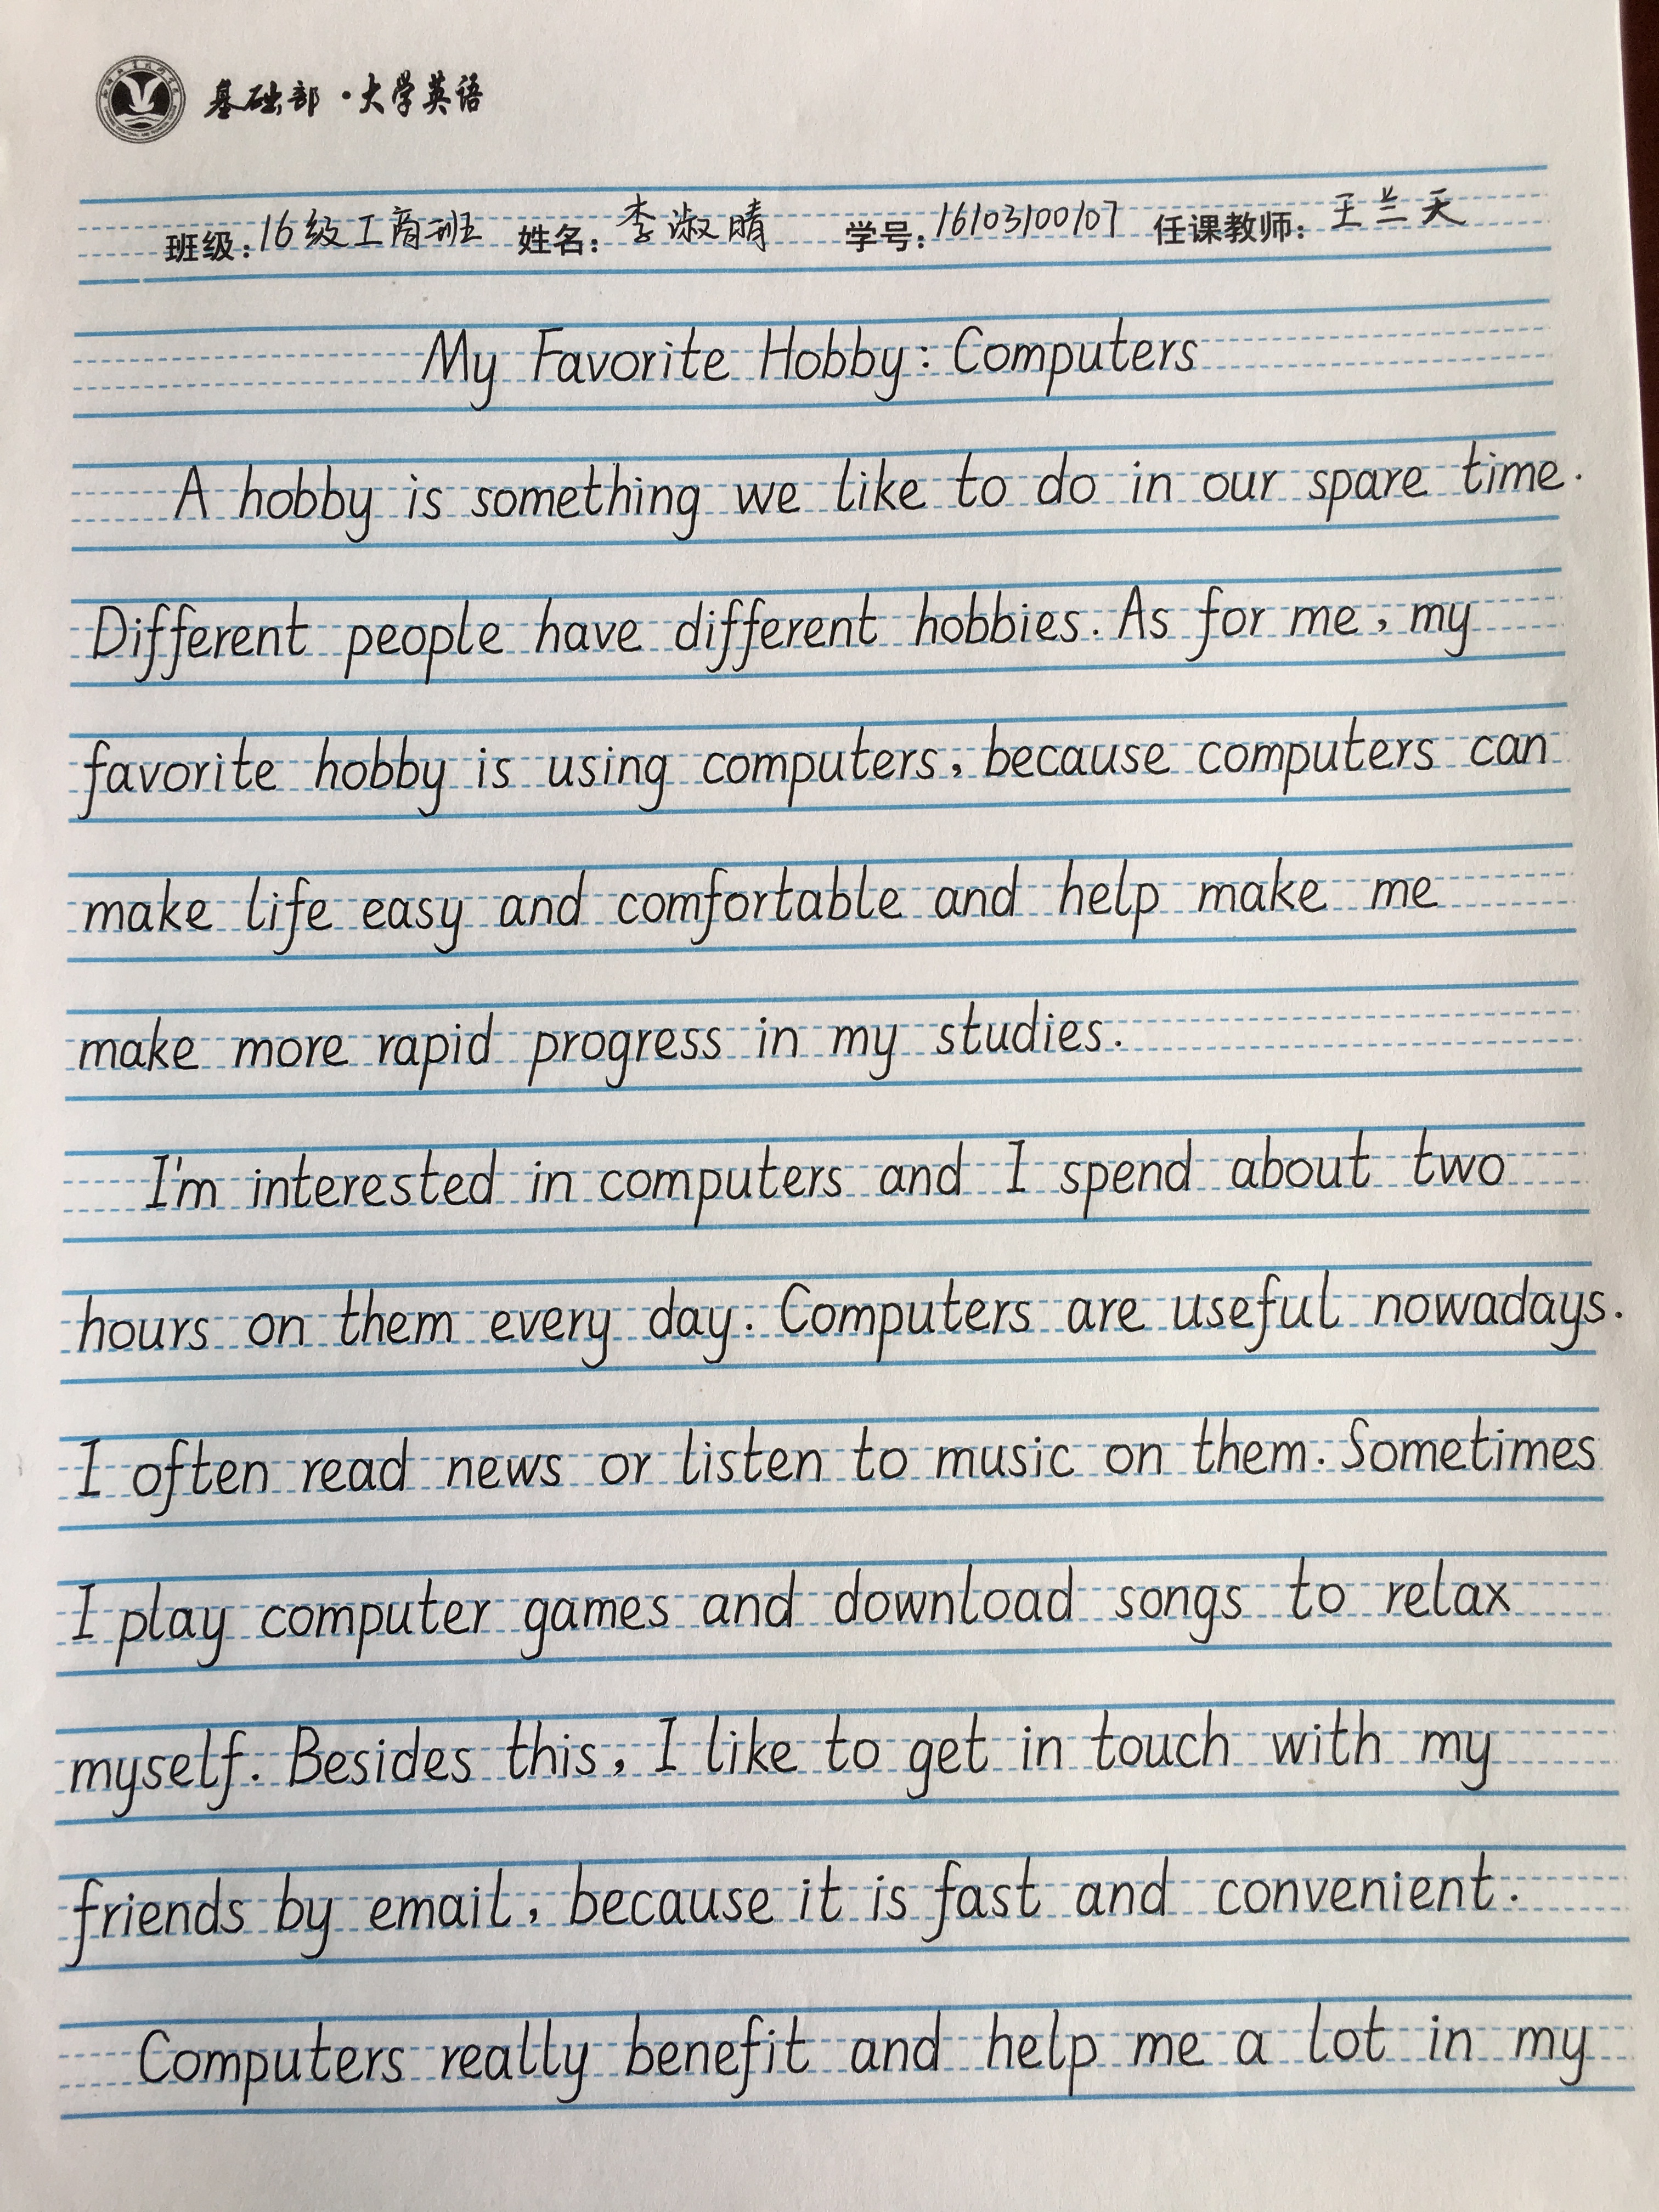 基础部·大学英语
班级:16级工商班 姓名:李淑晴 学号:16103100107 任课教师:王兰天
My Favorite Hobby: Computers
A hobby is something we like to do in our spare time.
Different people have different hobbies. As for me, my
favorite hobby is using computers, because computers can
make life easy and comfortable and help make me
make more rapid progress in my studies.
I'm interested in computers and I spend about two
hours on them every day. Computers are useful nowadays.
I often read news or listen to music on them. Sometimes
I play computer games and download songs to relax
myself. Besides this, I like to get in touch with my
friends by email, because it is fast and convenient.
Computers really benefit and help me a lot in my